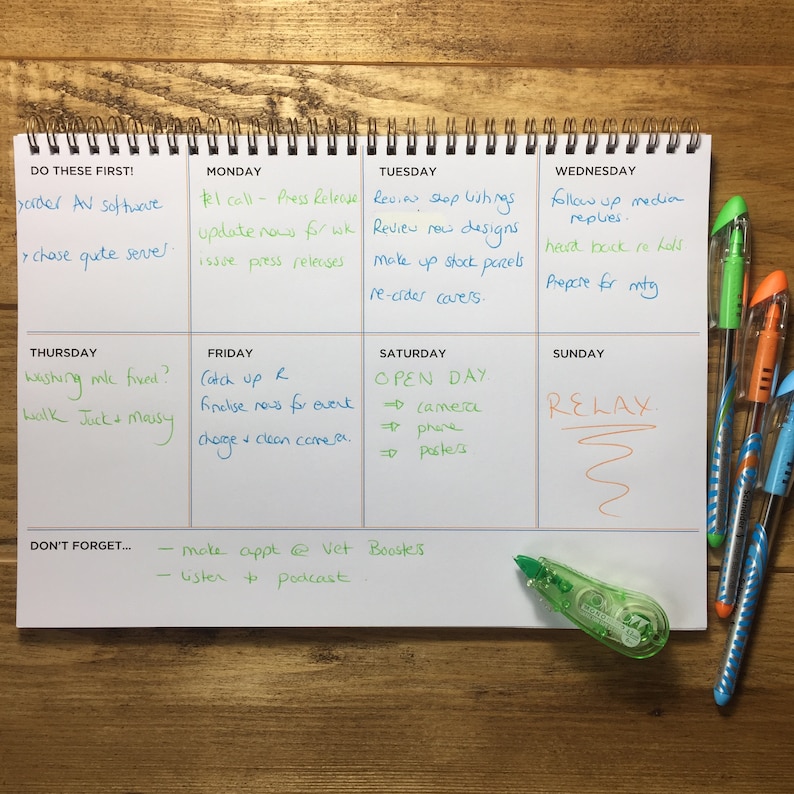 DO THESE FIRST!
order AV software
chase quote server.
MONDAY
tel call - Press Release
update news for wk
issue press releases
TUESDAY
Review shop listings
Review new designs
make up stock parcels
re-order covers.
WEDNESDAY
follow up media
replies.
heard back re hols
Prepare for mtg
THURSDAY
washing m/c fixed?
walk Jack + Mousy
FRIDAY
Catch up R
finalise news for event
charge + clean camera.
SATURDAY
OPEN DAY.
⇒ camera
⇒ phone
⇒ posters
SUNDAY
RELAX.
DON'T FORGET...
- make appt @ Vet Boosters
- listen to podcast.
MONO
Schneider